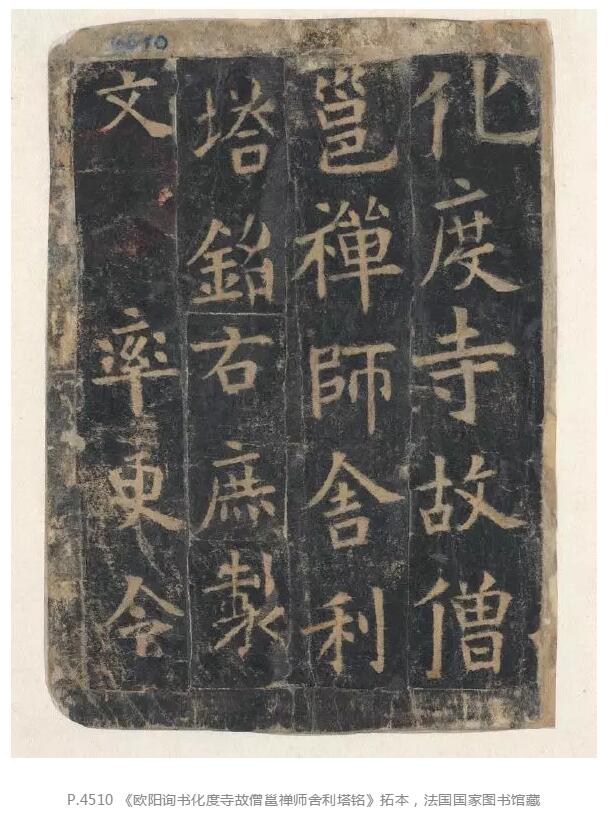 4510
化度寺故僧
邕禪師舍利
塔銘右庶製
文 率更令
P.4510 《欧阳询书化度寺故僧邕禅师舍利塔铭》拓本，法国国家图书馆藏